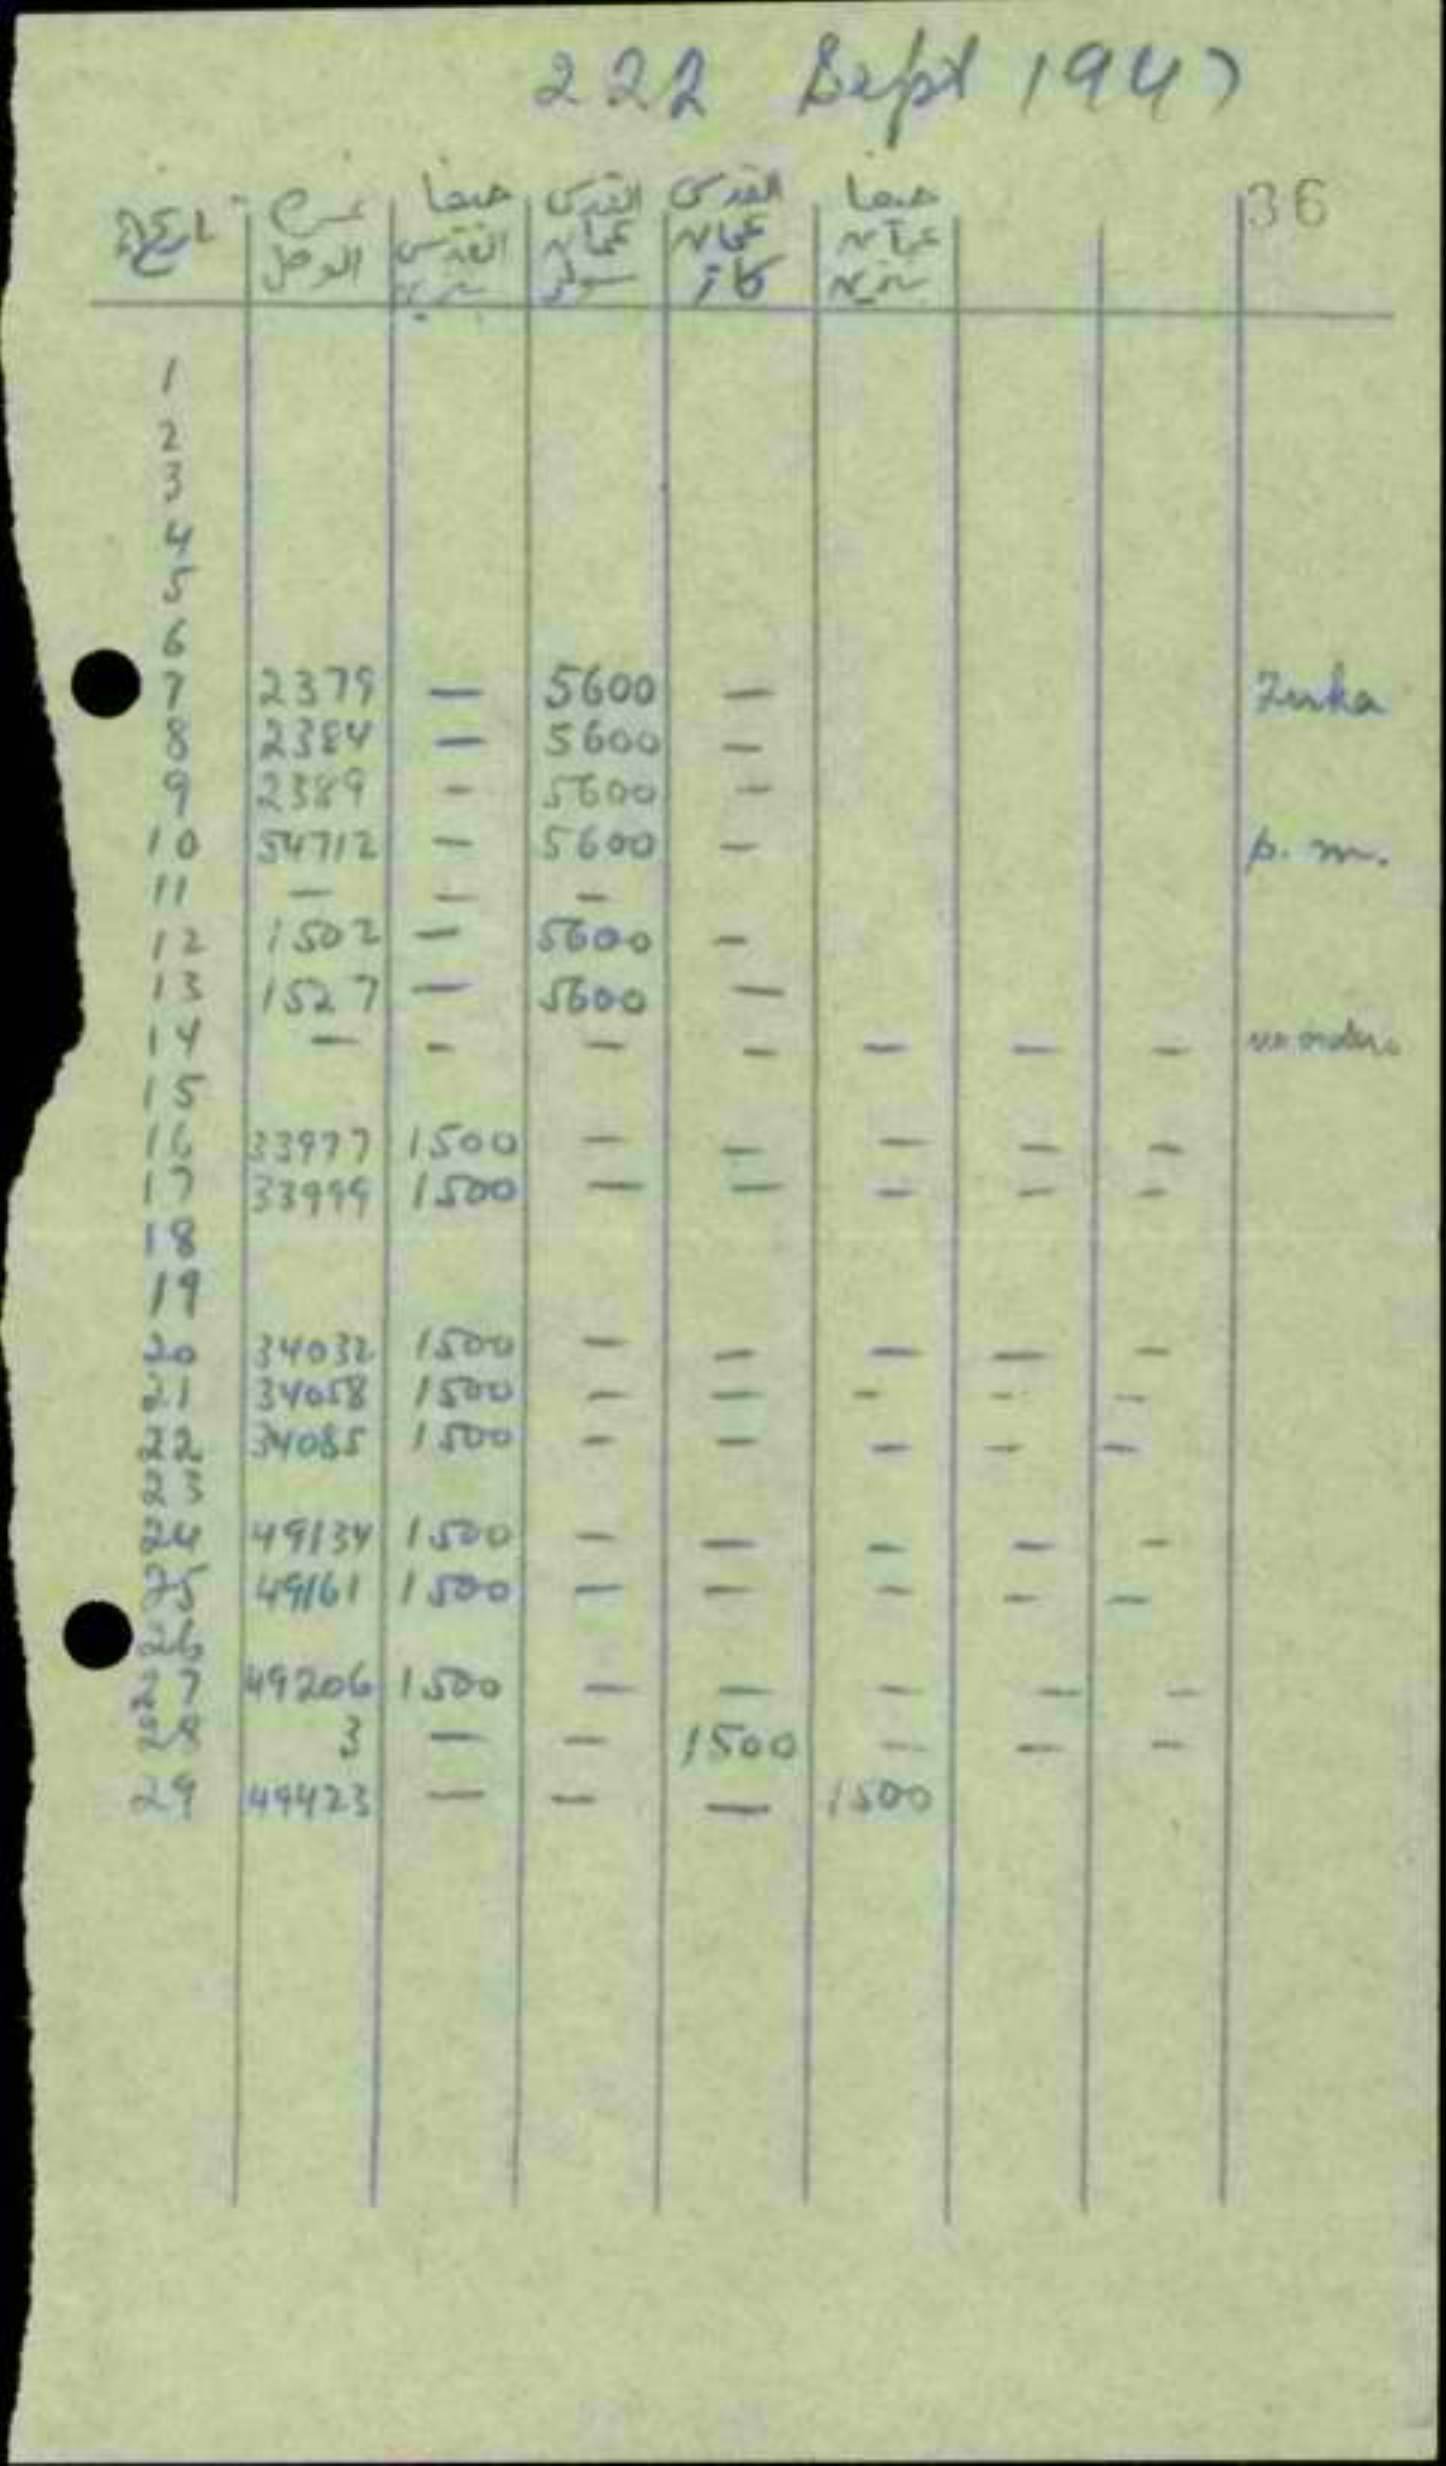 222 Sept 1947
36
نمرة حيفا القدس القدس حيفا
الوصل القدس عمان عمان عمان
بنزين سولار كاز بنزين
1
2
3
4
5
6
7 2379 — 5600 — Zerka
8 2384 — 5600 —
9 2389 — 5600 —
10 54712 — 5600 — p.m.
11 — — —
12 1502 — 5600 —
13 1527 — 5600 —
14 — — — — — — — no orders
15
16 33977 1500 — — — — —
17 33999 1500 — — — — —
18
19
20 34032 1500 — — — — —
21 34058 1500 — — — — —
22 34085 1500 — — — — —
23
24 49134 1500 — — — — —
25 49161 1500 — — — — —
26
27 49206 1500 — — — — —
28 3 — — 1500 — — —
29 49423 — — — 1500